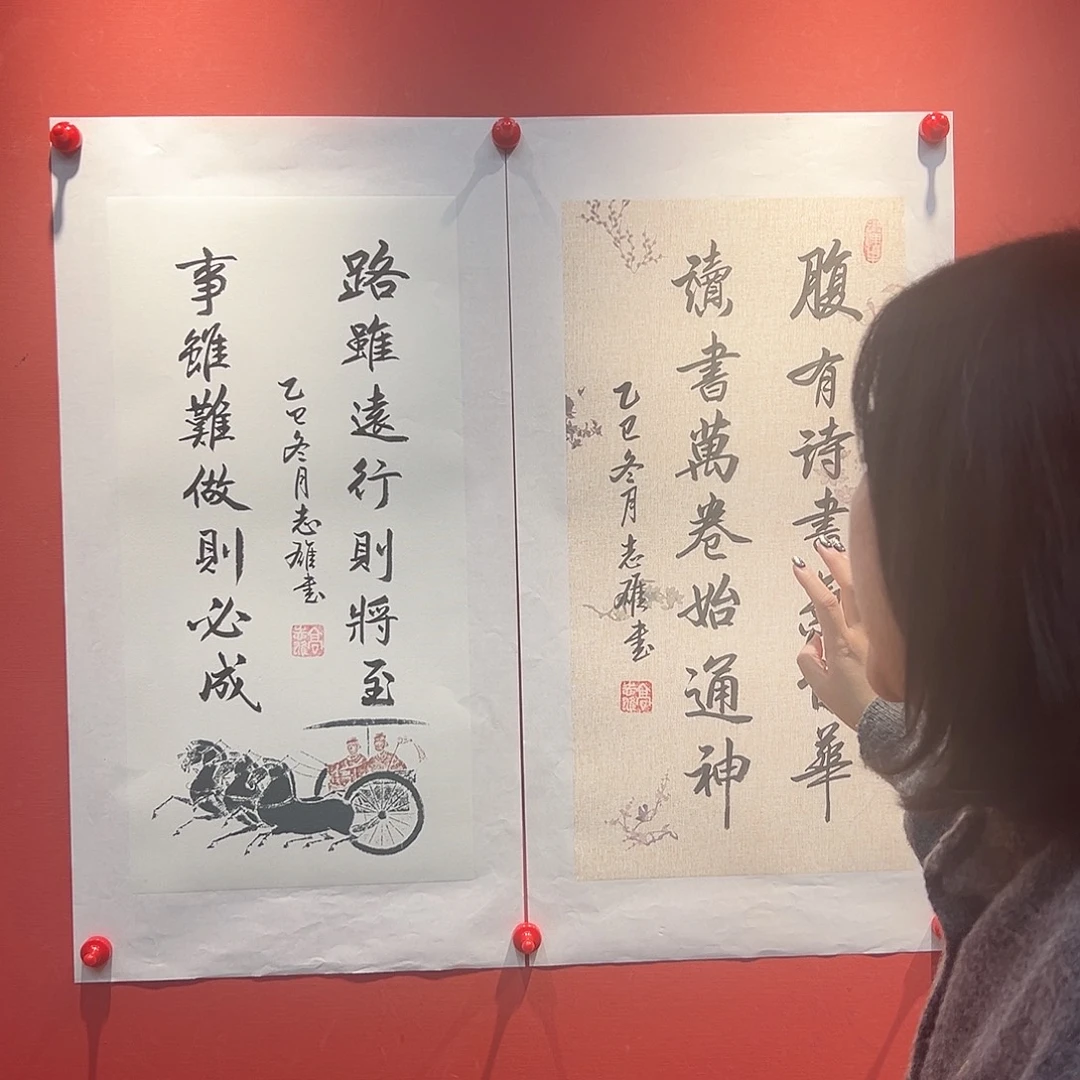 腹有诗書華
讀書萬卷始通神
乙巳冬月志雄書
路雖遠行則將至
乙巳冬月志雄書
事雖難做則必成